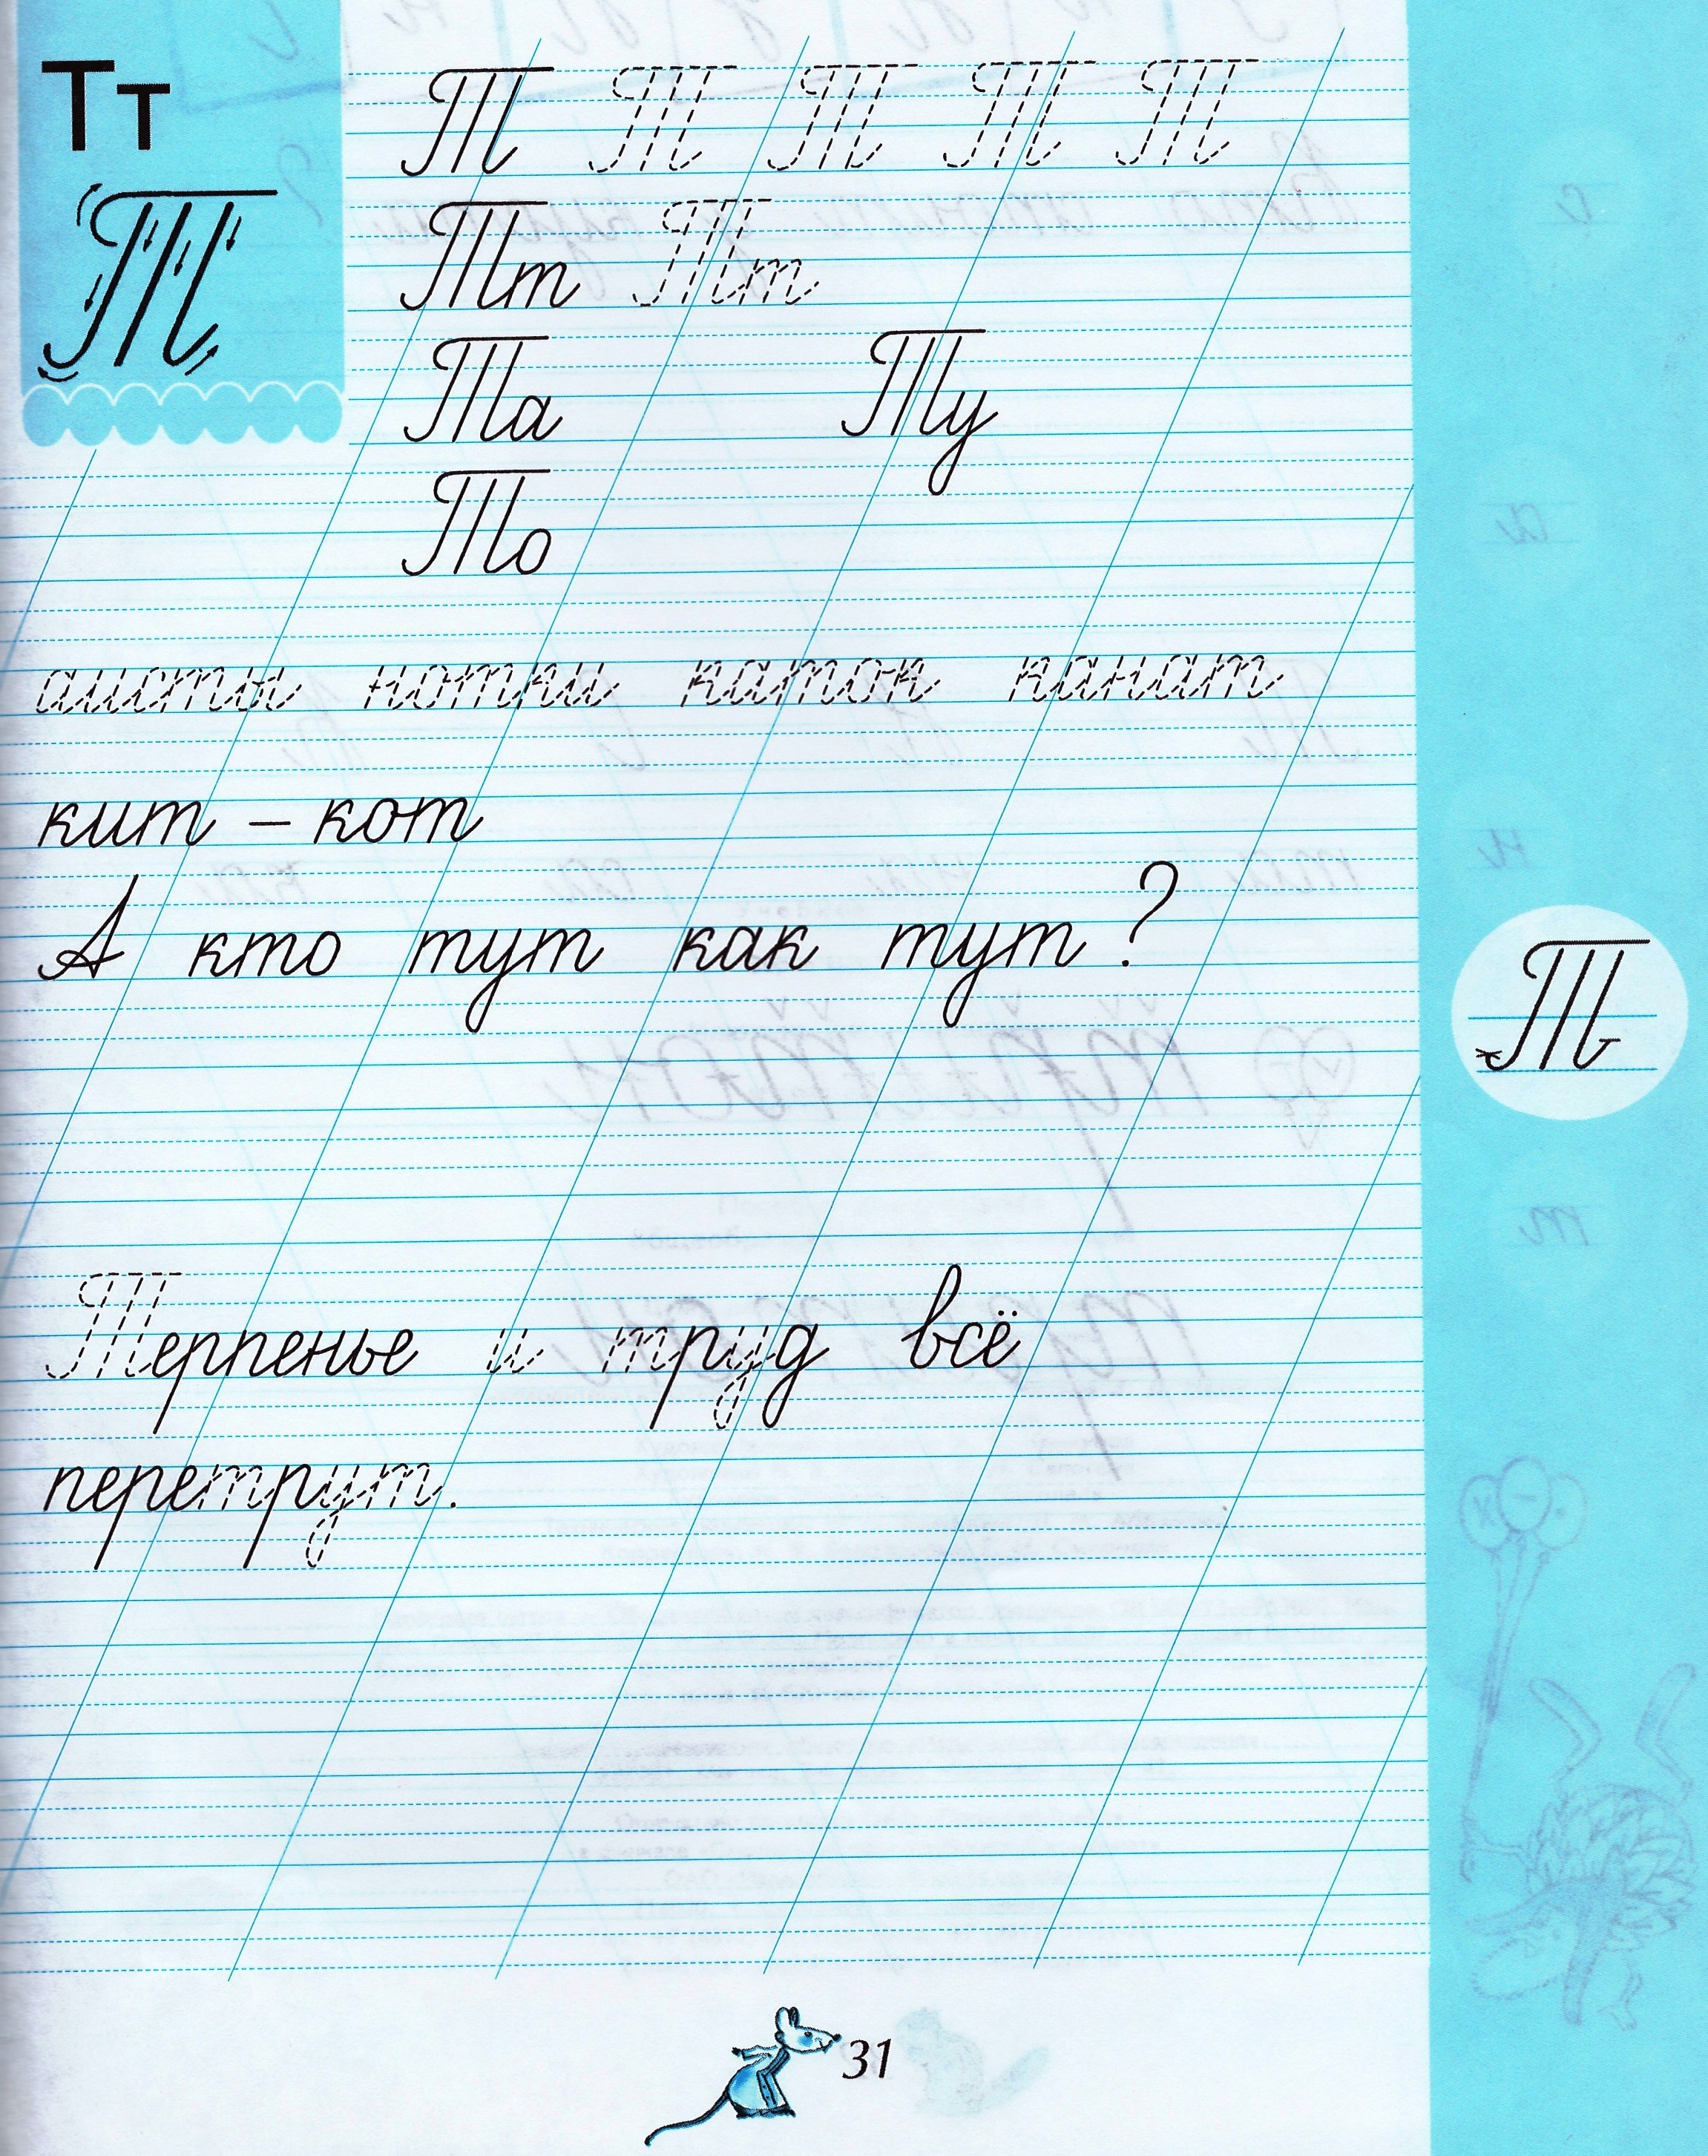 Тт
Т Т Т Т Т
Т
Тт Тт
Та Ту
То
аисты нотки каток канат
кит – кот
А кто тут как тут?
Т
Терпенье и труд всё
перетрут.
31